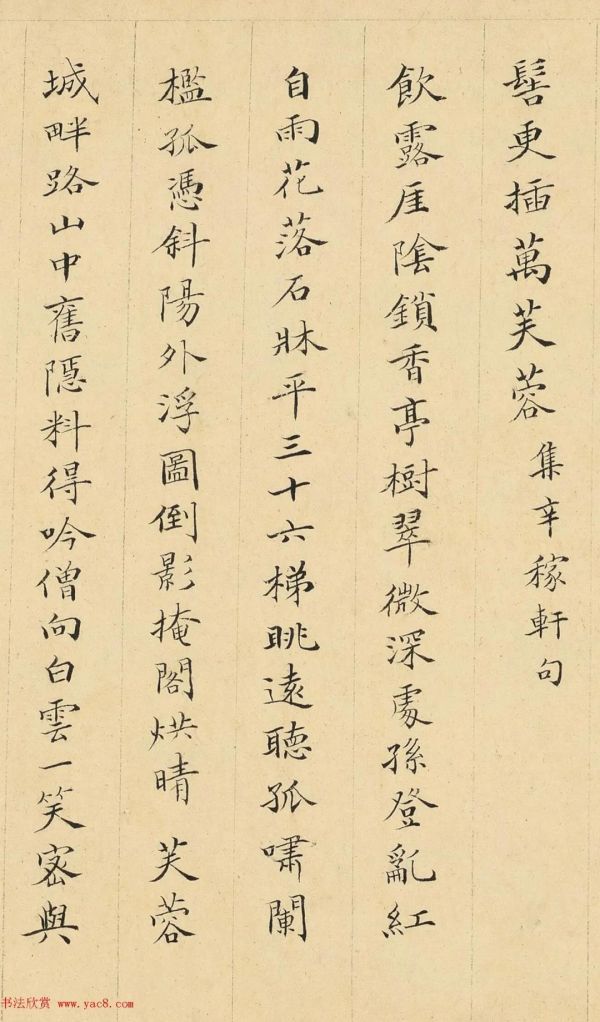 髻更插萬芙蓉集辛稼軒句
飲露厓陰鎖香亭樹翠微深處孫登亂紅
自雨花落石牀平三十六梯眺遠聽孤嘯闌
檻孤憑斜陽外浮圖倒影掩閣烘晴 芙蓉
城畔路山中舊隱料得吟僧向白雲一笑密與
书法欣赏 www.yac8.com